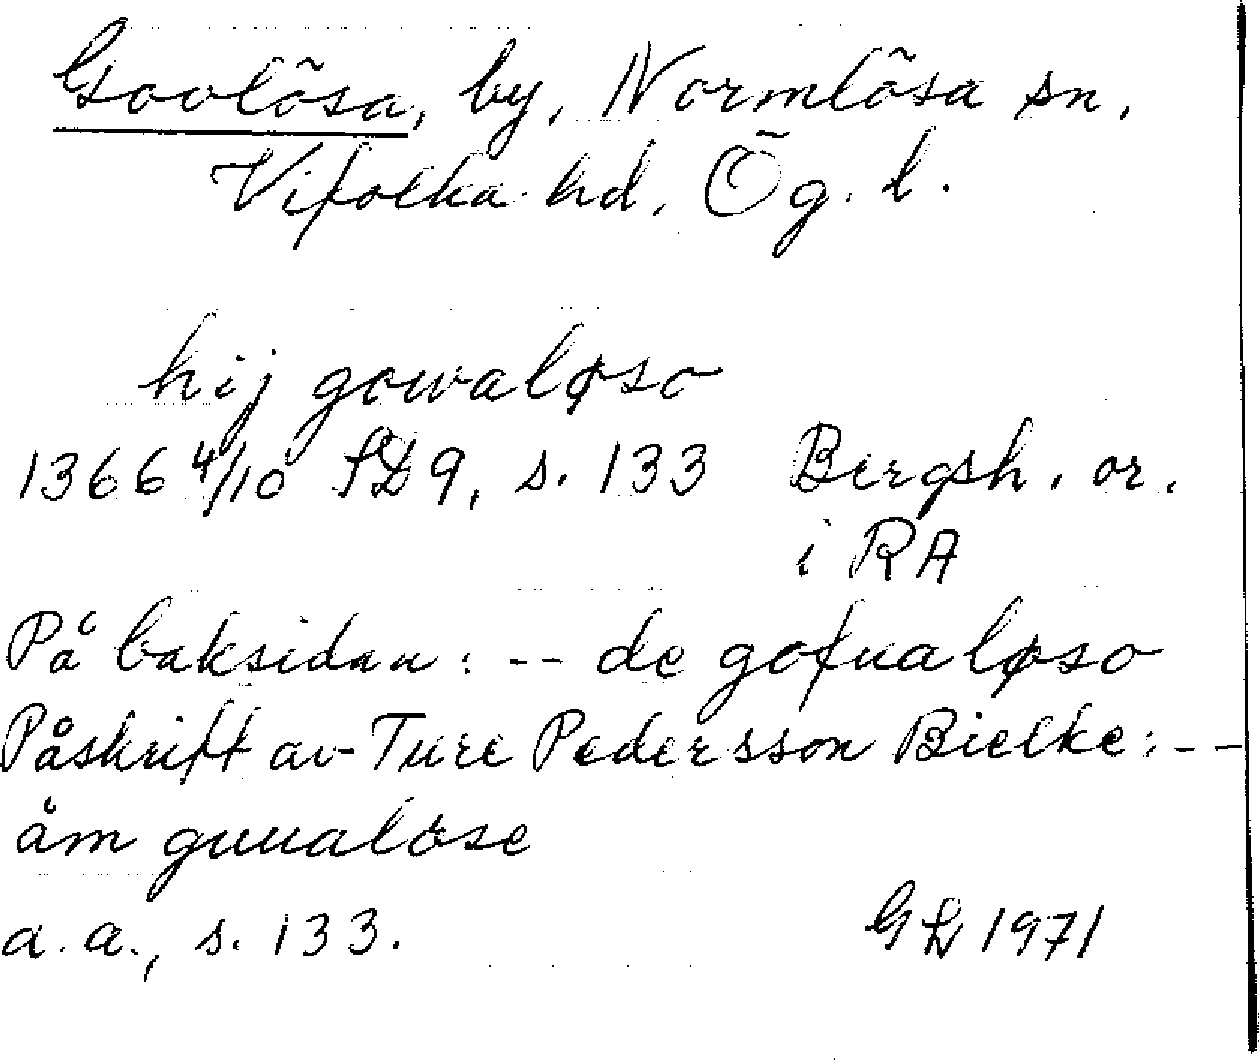 Govlösa, by, Normlösa sn,
Vifolka hd, Ög. l.
hij gowaløso
1366 4/10 SD9, s. 133 Bergsh. or.
i RA
På baksidan: -- de gofualøso
Påskrift av Ture Pedersson Bielke: --
åm guualöse
a. a., s. 133. GL 1971